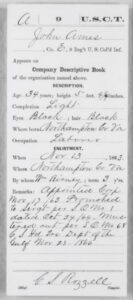 A 9 U.S.C.T.
John Ames
Co. E, 9 Reg't U.S. Col'd Inf.
Appears on
Company Descriptive Book
of the organization named above.
DESCRIPTION.
Age 34 years; height 5 feet inches.
Complexion Light
Eyes Black; hair Black
Where born Northampton Co Va
Occupation Laborer
ENLISTMENT.
When Nov 13, 1863.
Where Northampton Co Va
By whom term y'rs.
Remarks: Appointed Corp
Nov 17/63
to Sergt per S.O. No
dated Oct
out per S.O. No 68
Dept of the
Gulf Nov 23. 1866
C. S. Rozzell
Copyist.